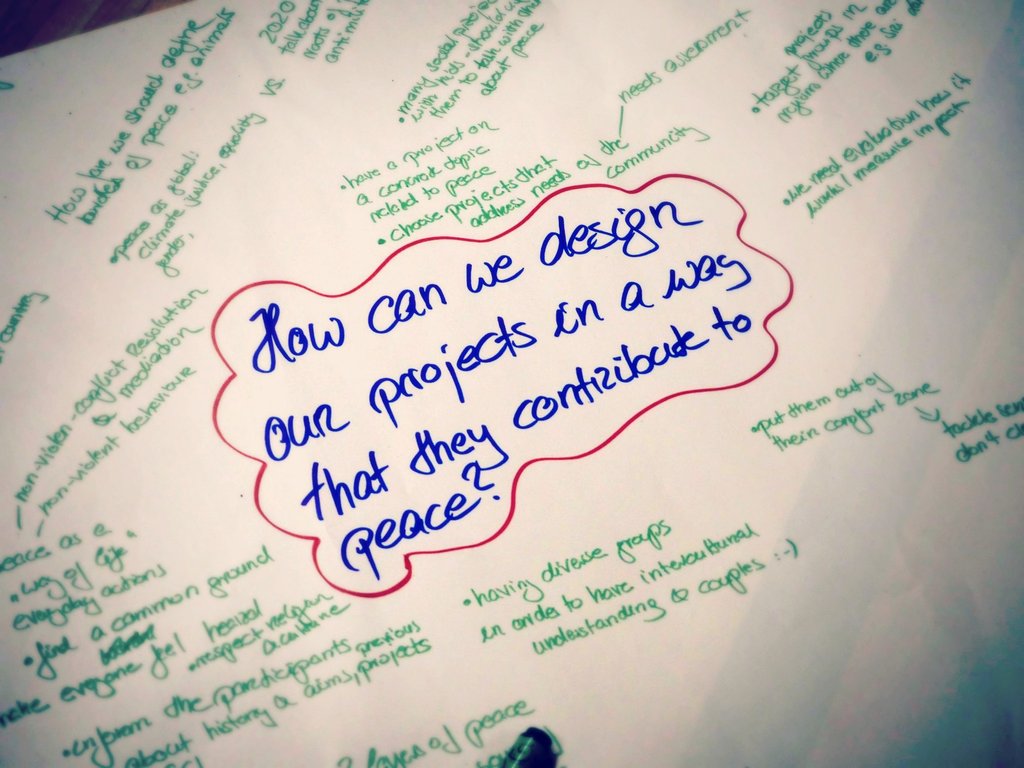 How can we design
our projects in a way
that they contribute to
peace?
How far we should define
borders of peace eg. animals
• peace as global:
climate justice, equality
gender,
vs.
2020
talk about
roots of
• many social projects
with kids should use
them to talk with them
about peace
needs assessment
• have a project on
a concrete topic
related to peace
• choose projects that
address needs of the
community
• target
projects
groups in
• we need evaluation how it
works / measure impact
- non-violen-conflict Resolution
& mediation
- non-violent behaviour
peace as a
• way of life &
everyday actions
• find a common ground
make everyone feel heard
• respect religion
& culture
• inform the participants previous
about history & aims, projects
• put them out of
their comfort zone
tackle
don't
• having diverse groups
in order to have intercultural
understanding & couples :-)
layers of peace